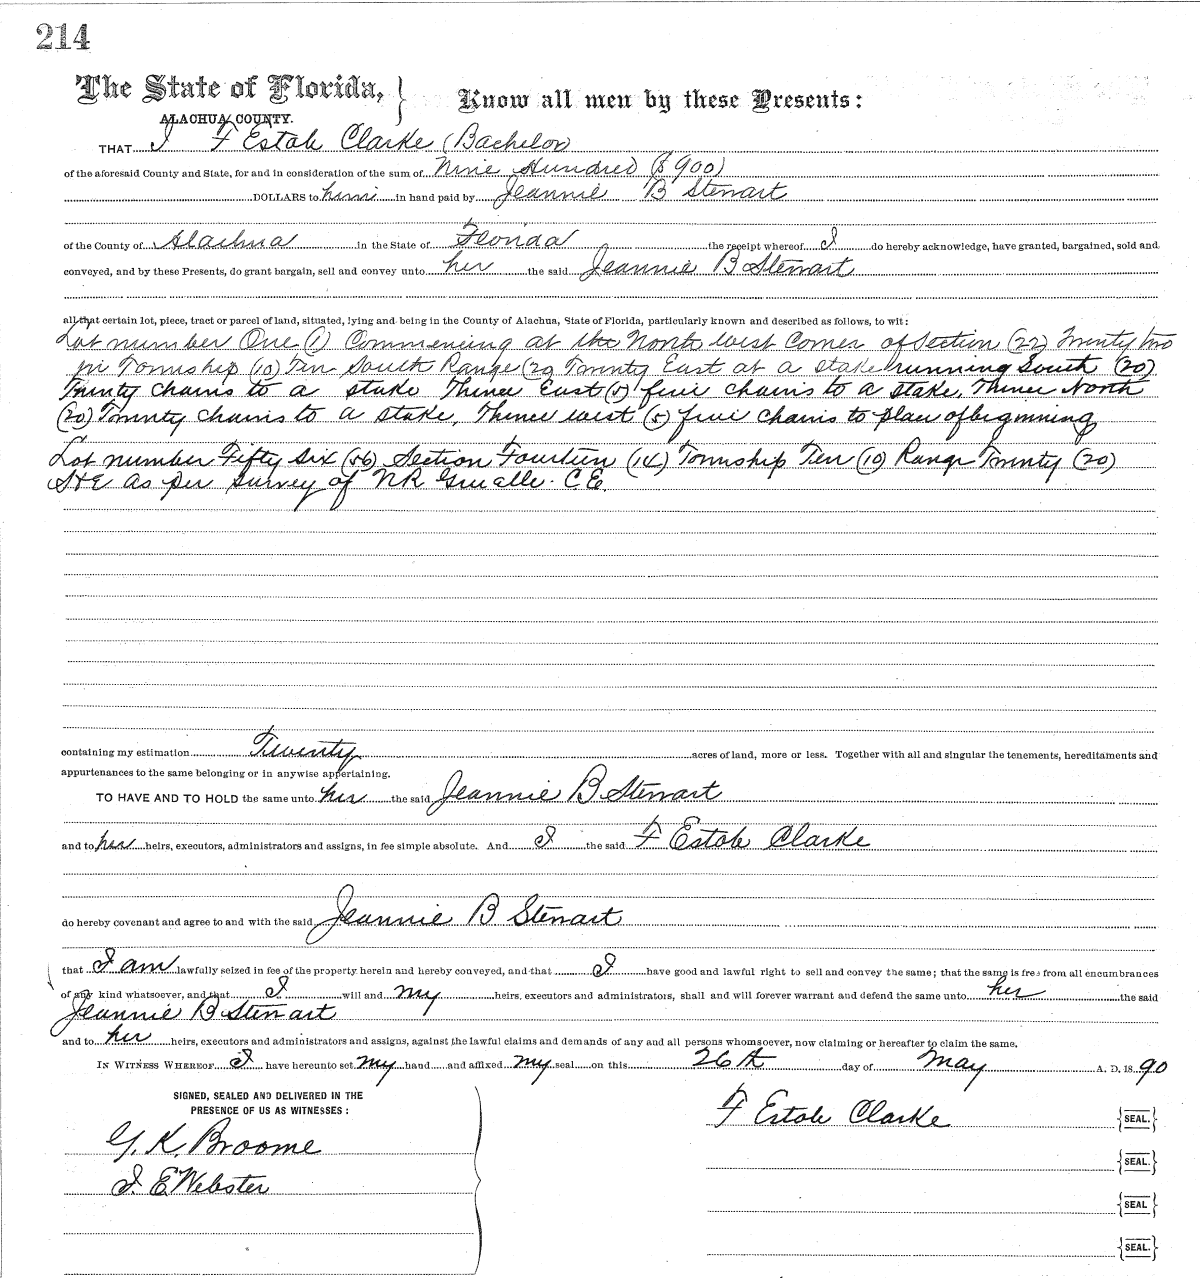 214
The State of Florida, } Know all men by these Presents:
ALACHUA COUNTY.
THAT I F Estole Clarke (Bachelor)
of the aforesaid County and State, for and in consideration of the sum of Nine Hundred ($900)
DOLLARS to him in hand paid by Jeannie B Stewart
of the County of Alachua in the State of Florida the receipt whereof I do hereby acknowledge, have granted, bargained, sold and
conveyed, and by these Presents, do grant bargain, sell and convey unto her the said Jeannie B Stewart
all that certain lot, piece, tract or parcel of land, situated, lying and being in the County of Alachua, State of Florida, particularly known and described as follows, to wit:
Lot number One (1) Commencing at the North west Corner of Section (22) Twenty two
in Township (10) Ten South Range (20 Twenty East at a stake running South (20)
Twenty chains to a stake Thence East (5) five chains to a stake, Thence North
(20) Twenty chains to a stake, Thence west (5) five chains to place of beginning
Lot number Fifty six (56) Section Fourteen (14) Township Ten (10) Range Twenty (20)
S & E as per Survey of N R C.E.
containing my estimation Twenty acres of land, more or less. Together with all and singular the tenements, hereditaments and
appurtenances to the same belonging or in anywise appertaining.
TO HAVE AND TO HOLD the same unto her the said Jeannie B Stewart
and to her heirs, executors, administrators and assigns, in fee simple absolute. And I the said F Estole Clarke
do hereby covenant and agree to and with the said Jeannie B Stewart
that I am lawfully seized in fee of the property herein and hereby conveyed, and that I have good and lawful right to sell and convey the same; that the same is free from all encumbrances
of any kind whatsoever, and that I will and my heirs, executors and administrators, shall and will forever warrant and defend the same unto her the said
Jeannie B Stewart
and to her heirs, executors and administrators and assigns, against the lawful claims and demands of any and all persons whomsoever, now claiming or hereafter to claim the same.
IN WITNESS WHEREOF I have hereunto set my hand and affixed my seal on this 26th day of May A. D. 1890
SIGNED, SEALED AND DELIVERED IN THE
PRESENCE OF US AS WITNESSES:
F Estole Clarke {SEAL.}
G. K. Broome
{SEAL.}
I. E Webster
{SEAL}
{SEAL.}